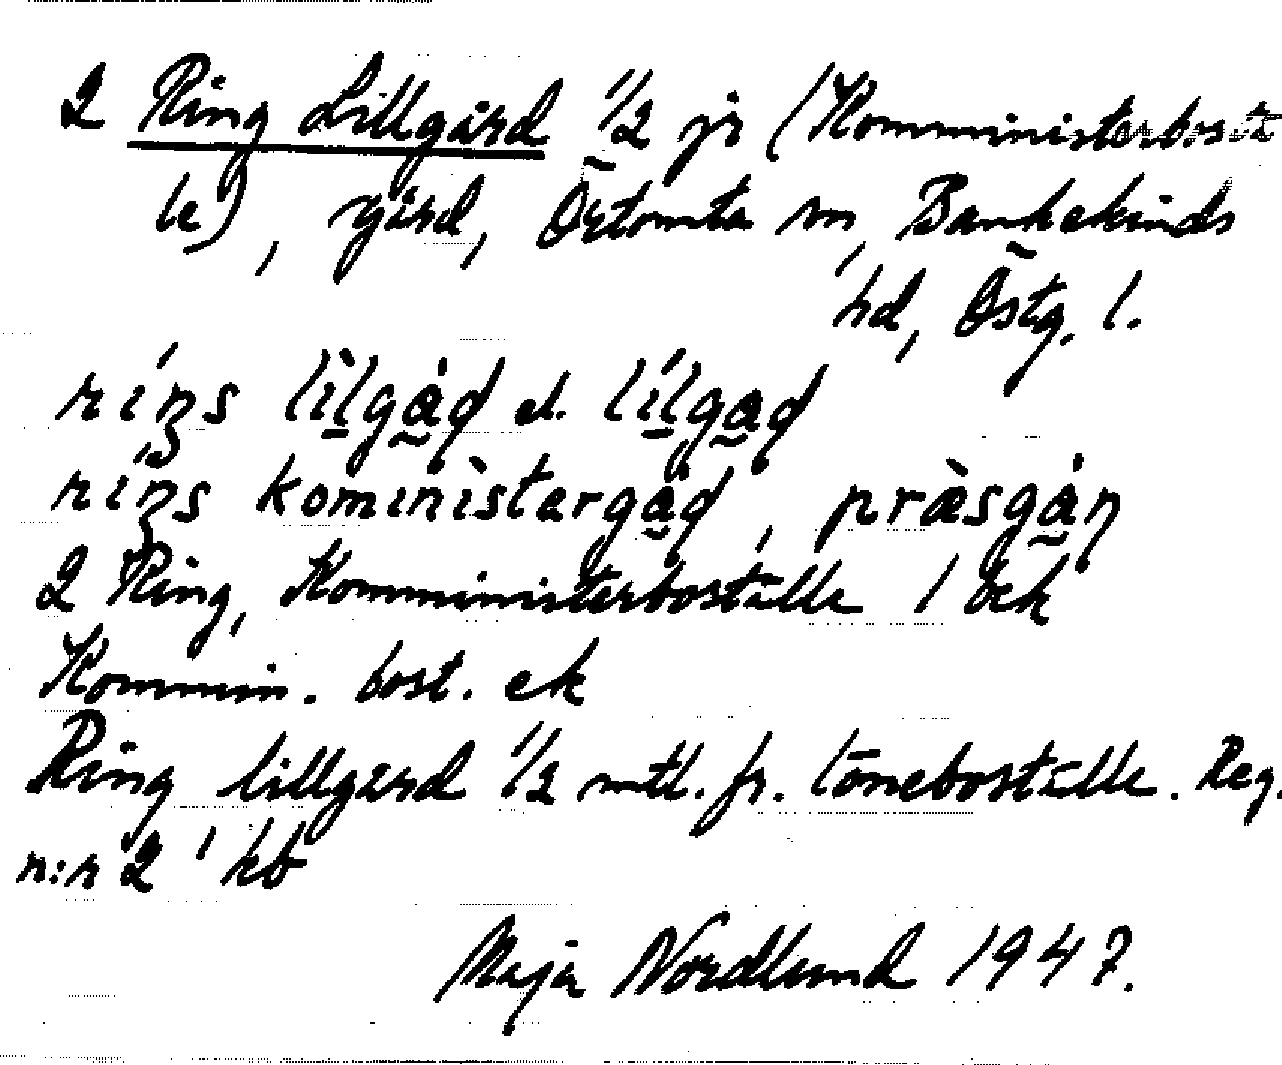 2 Ring Lillgård 1/2 jr (Komministerbostä
lle), gård, Örtomta sn, Bankekinds
hd, Östg. l.
ríŋs lìlgå̀ḍ el. lílgaḍ
ríŋs kominìstərgåḍ, præ̀sgåṇ
2 Ring, Komministerboställe 1 öek
Kommin. bost. ek
Ring lillgård 1/2 mtl. fr. löneboställe. Reg.
n:r 2 1 kb
Maja Nordlund 1947.